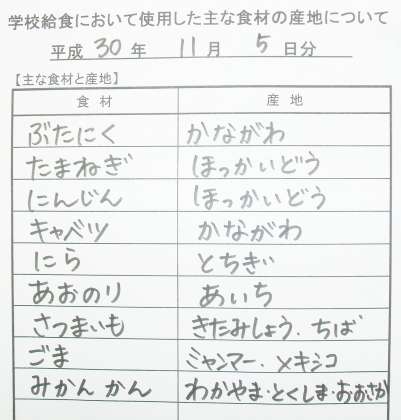 学校給食において使用した主な食材の産地について
平成 30 年 11 月 5 日分
【主な食材と産地】
食材 産地
ぶたにく かながわ
たまねぎ ほっかいどう
にんじん ほっかいどう
キャベツ かながわ
にら とちぎ
あおのり あいち
さつまいも きたみしょう.ちば
ごま ミャンマー.メキシコ
みかんかん わかやま・とくしま・おおさか